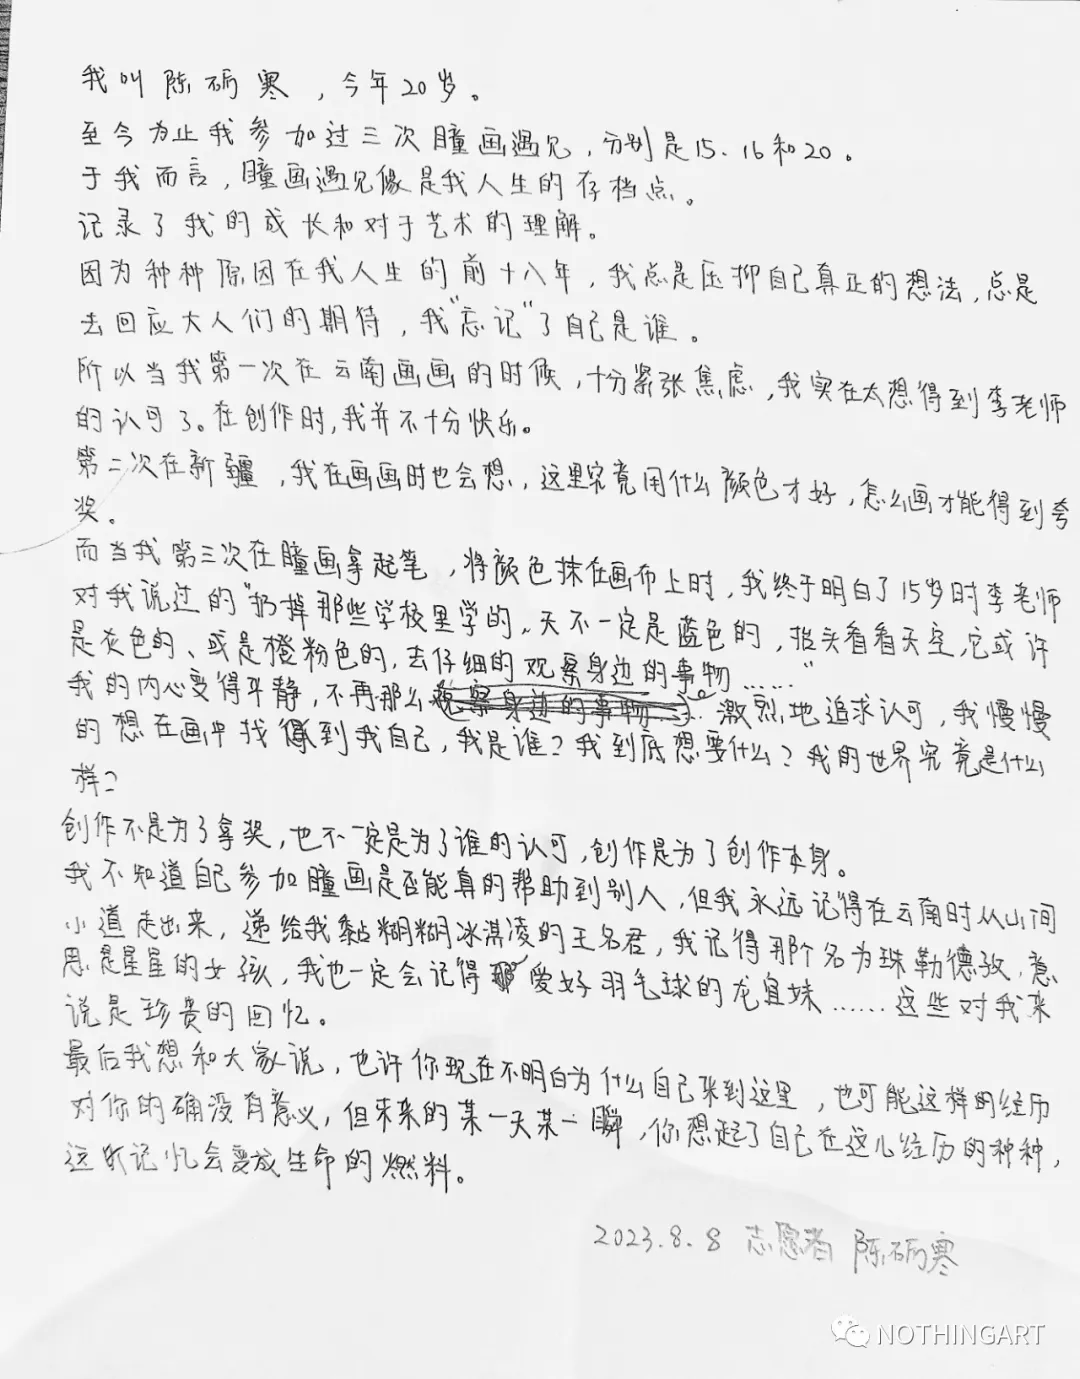 我叫陈砺寒，今年20岁。
至今为止我参加过三次瞳画遇见，分别是15、16和20。
于我而言，瞳画遇见像是我人生的存档点。
记录了我的成长和对于艺术的理解。
因为种种原因在我人生的前十八年，我总是压抑自己真正的想法，总是
去回应大人们的期待，我“忘记”了自己是谁。
所以当我第一次在云南画画的时候，十分紧张焦虑，我实在太想得到李老师
的认可了。在创作时，我并不十分快乐。
第二次在新疆，我在画画时也会想，这里究竟用什么颜色才好，怎么画才能得到夸
奖。
而当我第三次在瞳画拿起笔，将颜色抹在画布上时，我终于明白了15岁时李老师
对我说过的“扔掉那些学校里学的，天不一定是蓝色的，抬头看看天空，它或许
是灰色的、或是橙粉色的，去仔细的观察身边的事物……”
我的内心变得平静，不再那么激烈地追求认可，我慢慢
的想在画中找到我自己，我是谁？我到底想要什么？我的世界究竟是什么
样？
创作不是为了拿奖，也不一定是为了谁的认可，创作是为了创作本身。
我不知道自己参加瞳画是否能真的帮助到别人，但我永远记得在云南时从山间
小道走出来，递给我黏糊糊冰淇凌的王名君，我记得那个名为珠勒德孜，意
思是星星的女孩，我也一定会记得那爱好羽毛球的龙宜妹……这些对我来
说是珍贵的回忆。
最后我想和大家说，也许你现在不明白为什么自己来到这里，也可能这样的经历
对你的确没有意义，但未来的某一天某一瞬，你想起了自己在这儿经历的种种，
这次记忆会变成生命的燃料。
2023.8.8 志愿者 陈砺寒
NOTHINGART